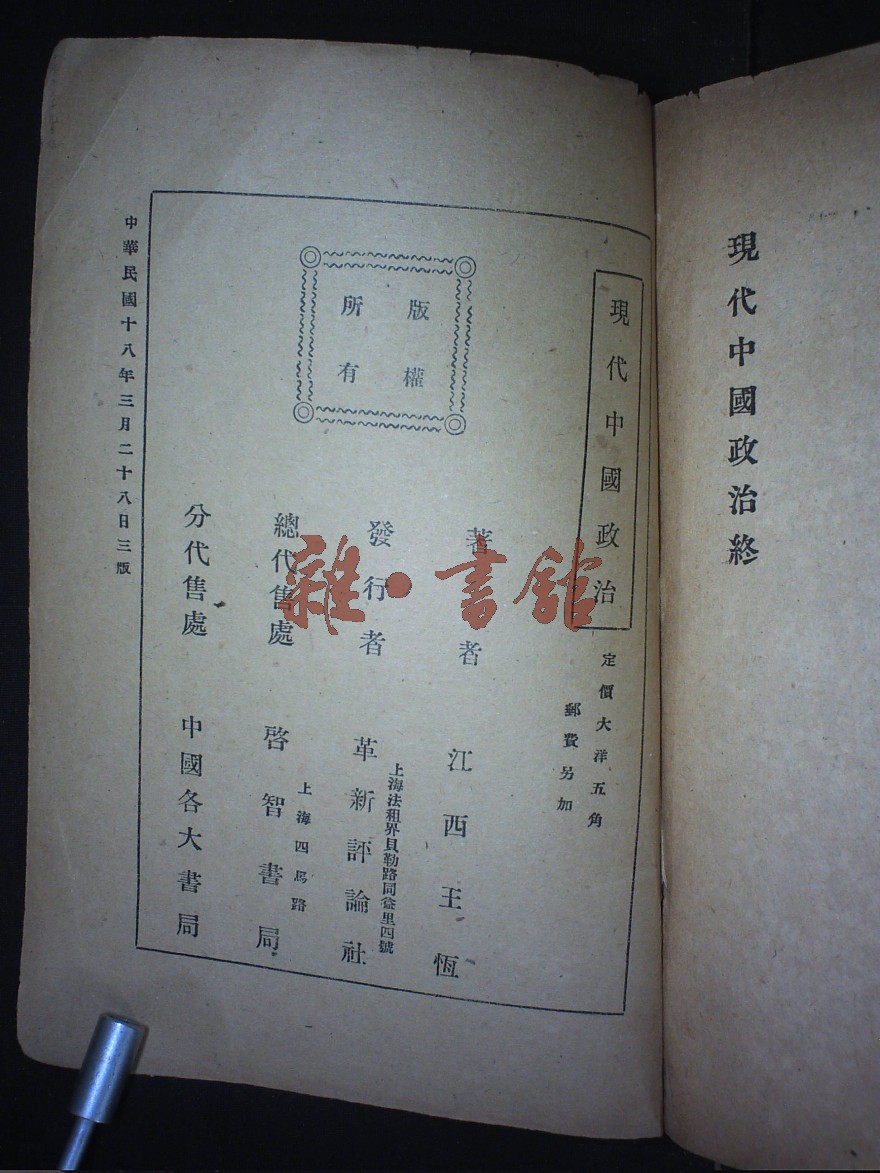 現代中國政治終
現代中國政治
定價大洋五角
郵費另加
版權
所有
著者 江西王恆
發行者 上海法租界貝勒路同益里四號
革新評論社
總代售處 上海四馬路
啓智書局
分代售處 中國各大書局
中華民國十八年三月二十八日三版
雜·書館